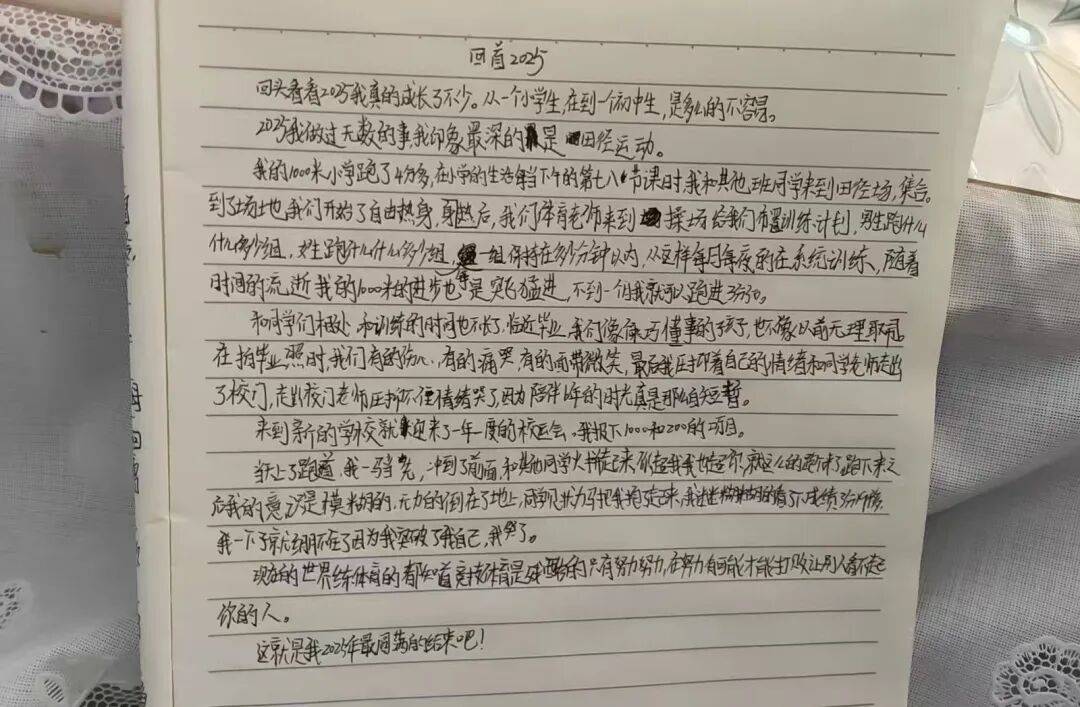 回首2025
回头看看2025我真的成长了不少。从一个小学生,在到一个初中生,是多么的不容易。
2025我做过无数的事我印象最深的是田径运动。
我的1000米小学跑了4分多,在小学的生活每当下午的第七八节课时,我和其他班同学来到田径场,集合。
到了场地我们开始了自由热身,身热后,我们体育老师来到操场给我们布置训练计划,男生跑什么
什么多少组,女生跑什么什么多少组,一组保持在多少分钟以内,从这样每月每度的在系统训练,随着
时间的流逝我的1000米的进步也是突飞猛进,不到一个月我就可以跑进3分50。
和同学们相处,和训练的时间也不长了,临近毕业,我们像康乃懂事的孩子,也不像以前无理取闹。
在拍毕业照时,我们有的伤心、有的痛哭,有的面带微笑,最后我压抑着自己的情绪和同学老师走出
了校门,走出校门老师压抑不住情绪哭了,因为陪伴6年的时光真是那么的短暂。
来到新的学校就迎来了一年一度的校运会。我报下1000和200的项目。
站上了跑道,我一马当先,冲到了前面,和其他同学火拼起来,你超我我也超你,就这么的跑下来了。跑下来之
后我的意识是模糊的,无力的倒在了地上,同学见状马把我抱走起来,我过去糊糊的看了下成绩3分
我一下子就绷不住了因为我突破了我自己,我哭了。
现在的世界练体育的都知道竞技体育是残酷的只有努力努力,在努力有可能才能打败让别人看不起
你的人。
这就是我2025年最圆满的结束吧!